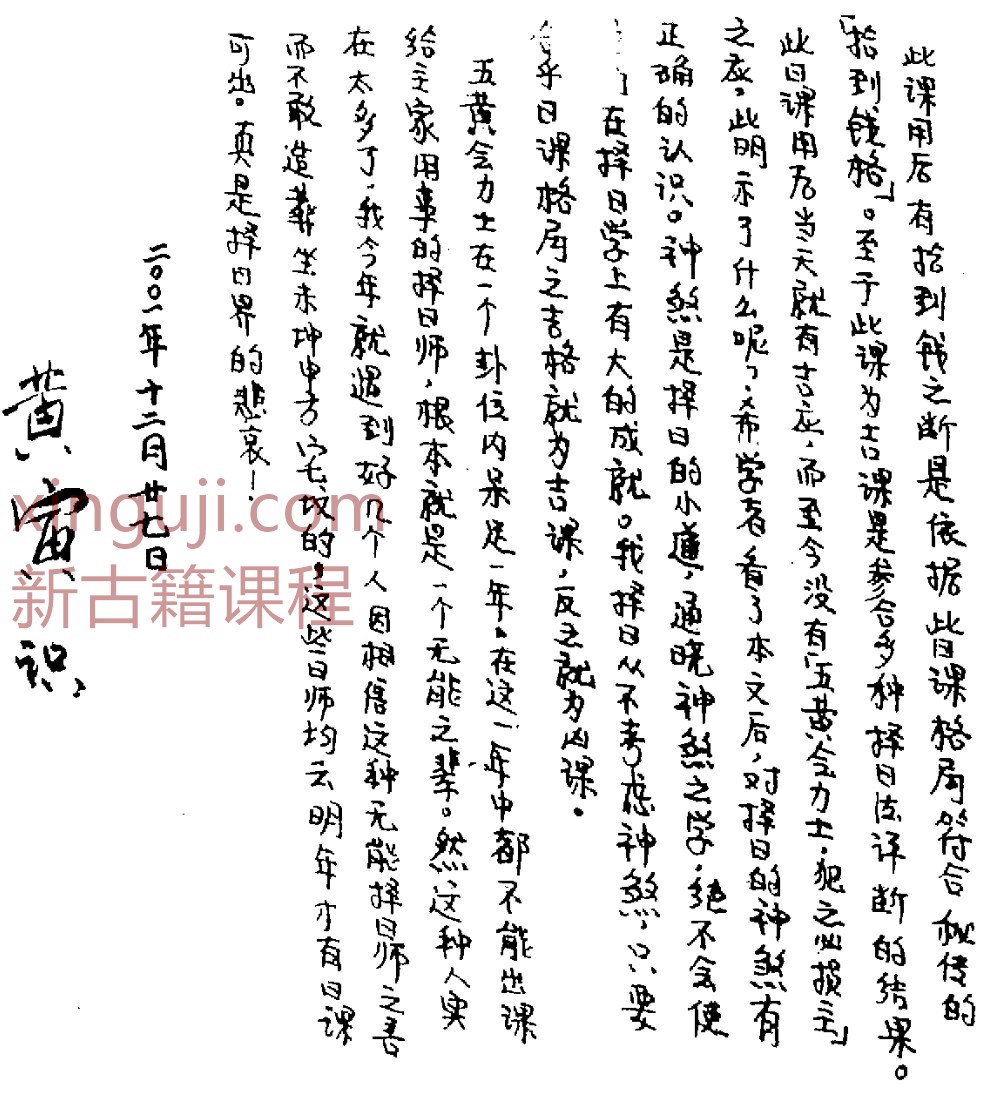 此课用后有拾到钱之断是依据此日课格局符合秘传的
「拾到钱格」。至于此课为吉课是参合多种择日法评断的结果。
此日课用后当天就有吉应,而至今没有「五黄会力士,犯之必损主」
之应。此明示了什么呢?希学者看了本文后,对择日的神煞有
正确的认识。神煞是择日的小道,通晓神煞之学,绝不会使
在择日学上有大的成就。我择日从不考虑神煞,只要
合乎日课格局之吉格就为吉课,反之就为凶课。
五黄会力士在一个卦位内呆足一年。在这一年中都不能出课
给主家用事的择日师,根本就是一个无能之辈。然这种人实
在太多了,我今年就遇到好几个人因相信这种无能择日师之言
而不敢造葬坐未坤申方宅坟的,这些日师均云明年才有日课
可出。真是择日界的悲哀!
二〇〇一年十二月廿七日
黄宙识
xinguji.com
新古籍课程